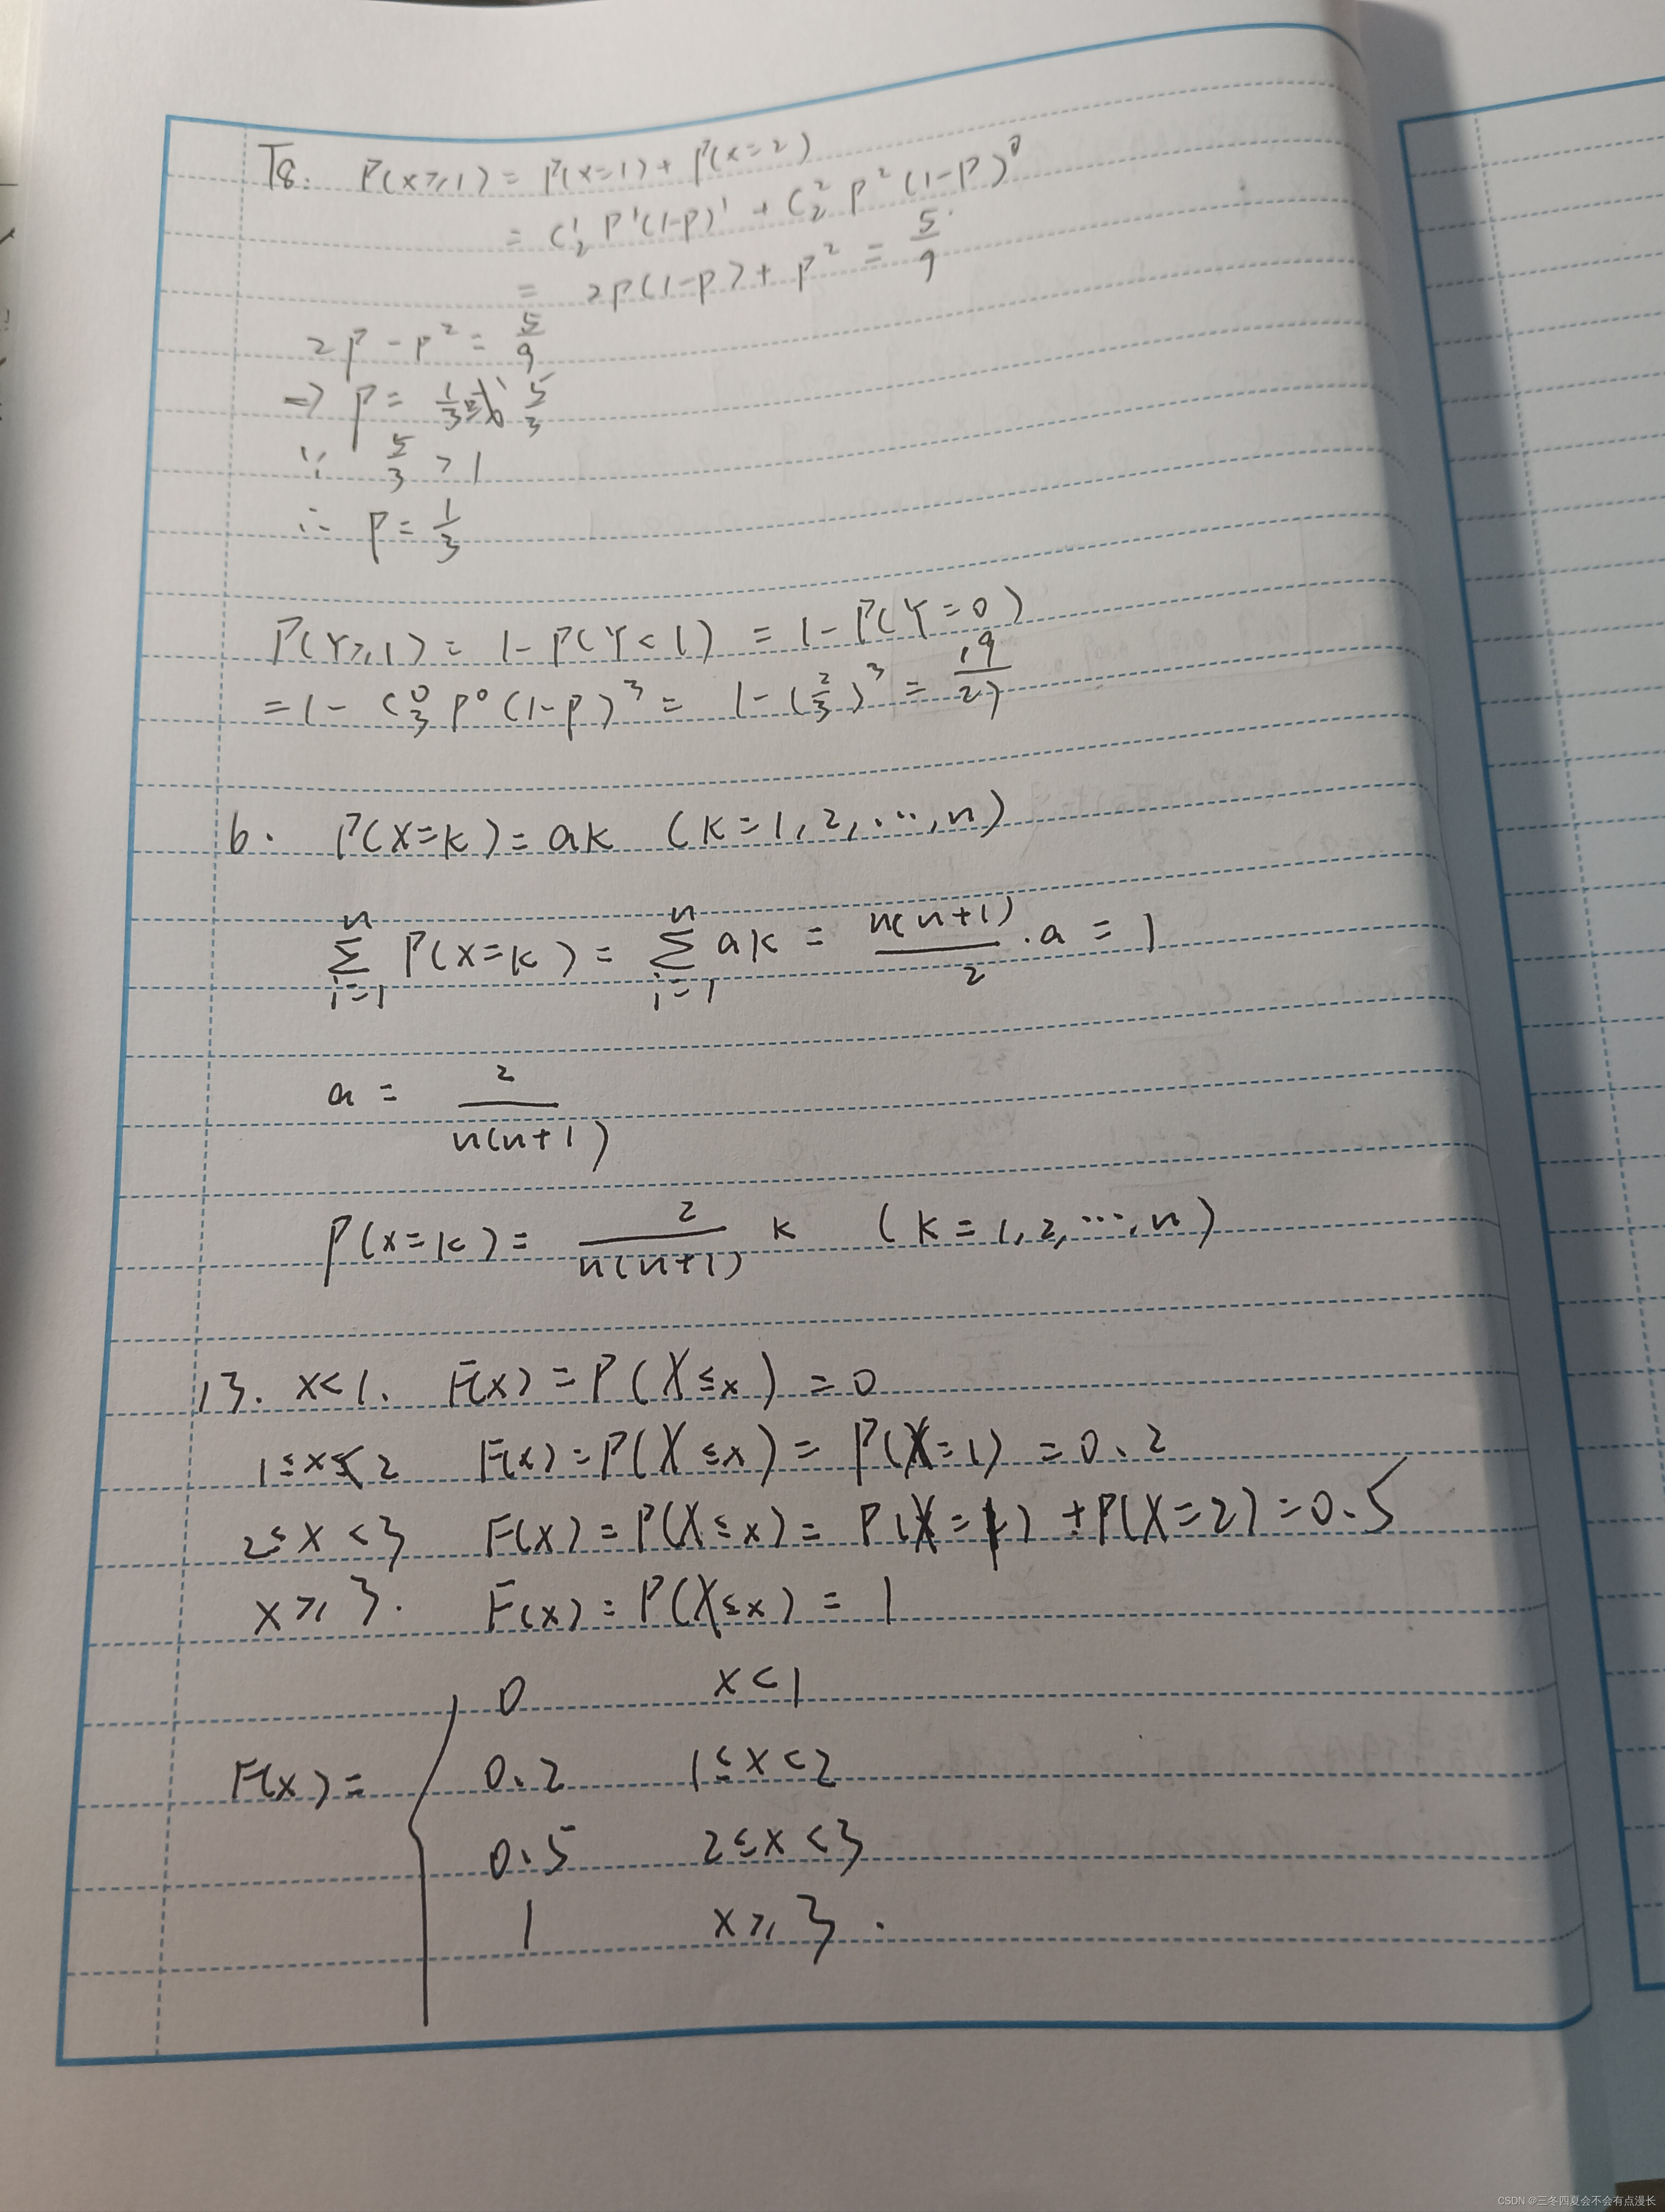 T8. P(X≥1) = P(X=1) + P(X=2)
= C₂¹ P¹(1-P)¹ + C₂² P² (1-P)⁰
= 2P(1-P) + P² = 5/9
2P - P² = 5/9
⇒ P = 1/3 或 5/3
∵ 5/3 > 1
∴ P = 1/3
P(Y≥1) = 1 - P(Y<1) = 1 - P(Y=0)
= 1 - C₃⁰ P⁰ (1-P)³ = 1 - (2/3)³ = 19/27
6. P(X=k) = ak (k=1,2,…,n)
∑_{i=1}^{n} P(X=k) = ∑_{i=1}^{n} ak = n(n+1)/2 · a = 1
a = 2/n(n+1)
P(X=k) = 2/n(n+1) k (k=1,2,…,n)
13. x<1. F(x) = P(X≤x) = 0
1≤x<2 F(x) = P(X≤x) = P(X=1) = 0.2
2≤x<3 F(x) = P(X≤x) = P(X=1) + P(X=2) = 0.5
x≥3. F(x) = P(X≤x) = 1
0 x<1
F(x) = { 0.2 1≤x<2
0.5 2≤x<3
1 x≥3.
CSDN @三冬四夏会不会有点漫长